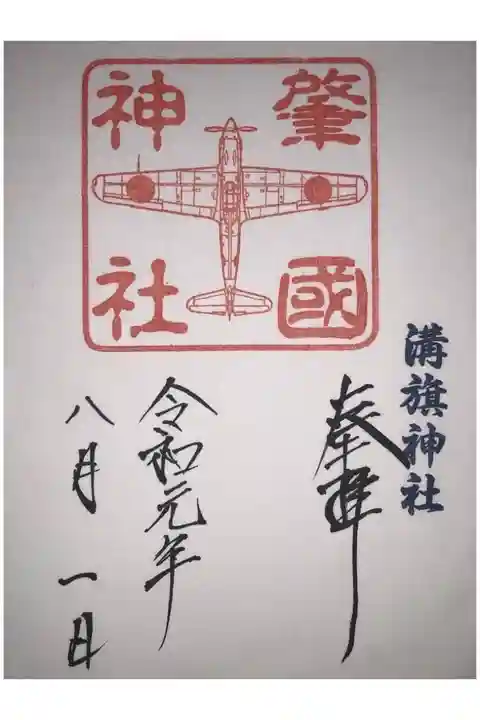 肇國
神社
溝旗神社
奉拝
令和元年
八月一日